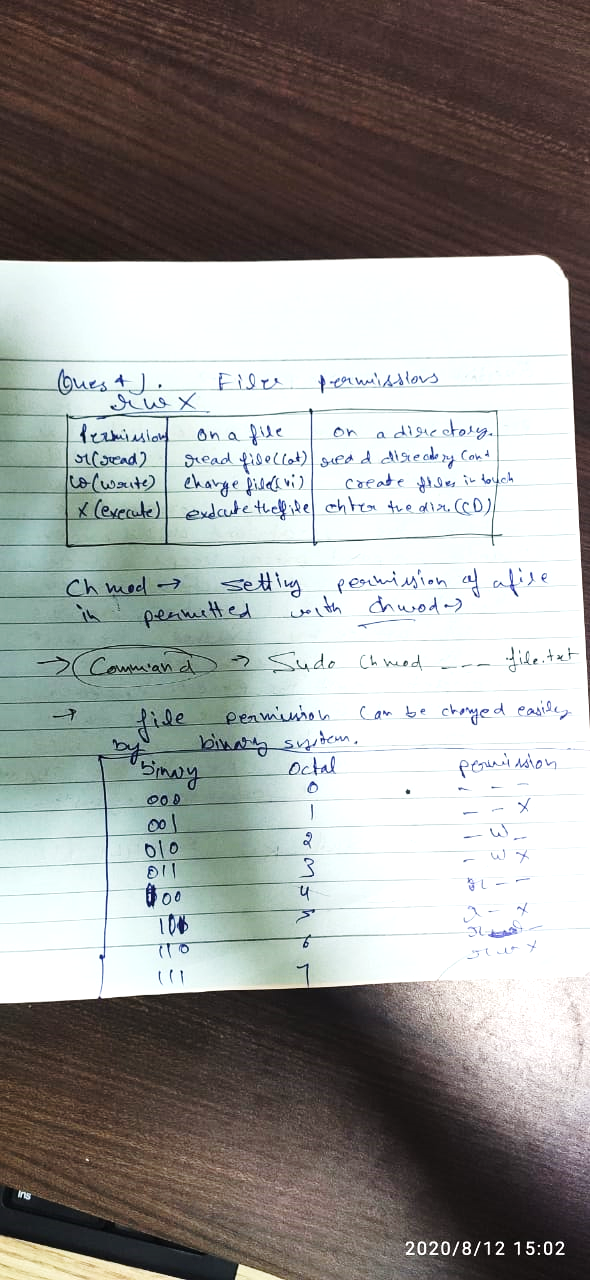 Ques 4). File permissions
r w x
Permission on a file on a directory.
r(read) read file(cat) read directory
w(write) change file(vi) create files in touch
x(execute) execute the file enter the dir. (CD)
Chmod → setting permission of a file
in permitted with chmod →
→ Command → Sudo Chmod --- file.txt
→ file permission can be changed easily
by binary system.
binary Octal permission
000 0 - - -
001 1 - - x
010 2 - w -
011 3 - w x
100 4 r - -
101 5 r - x
110 6 r w -
111 7 r w x
Ins
2020/8/12 15:02